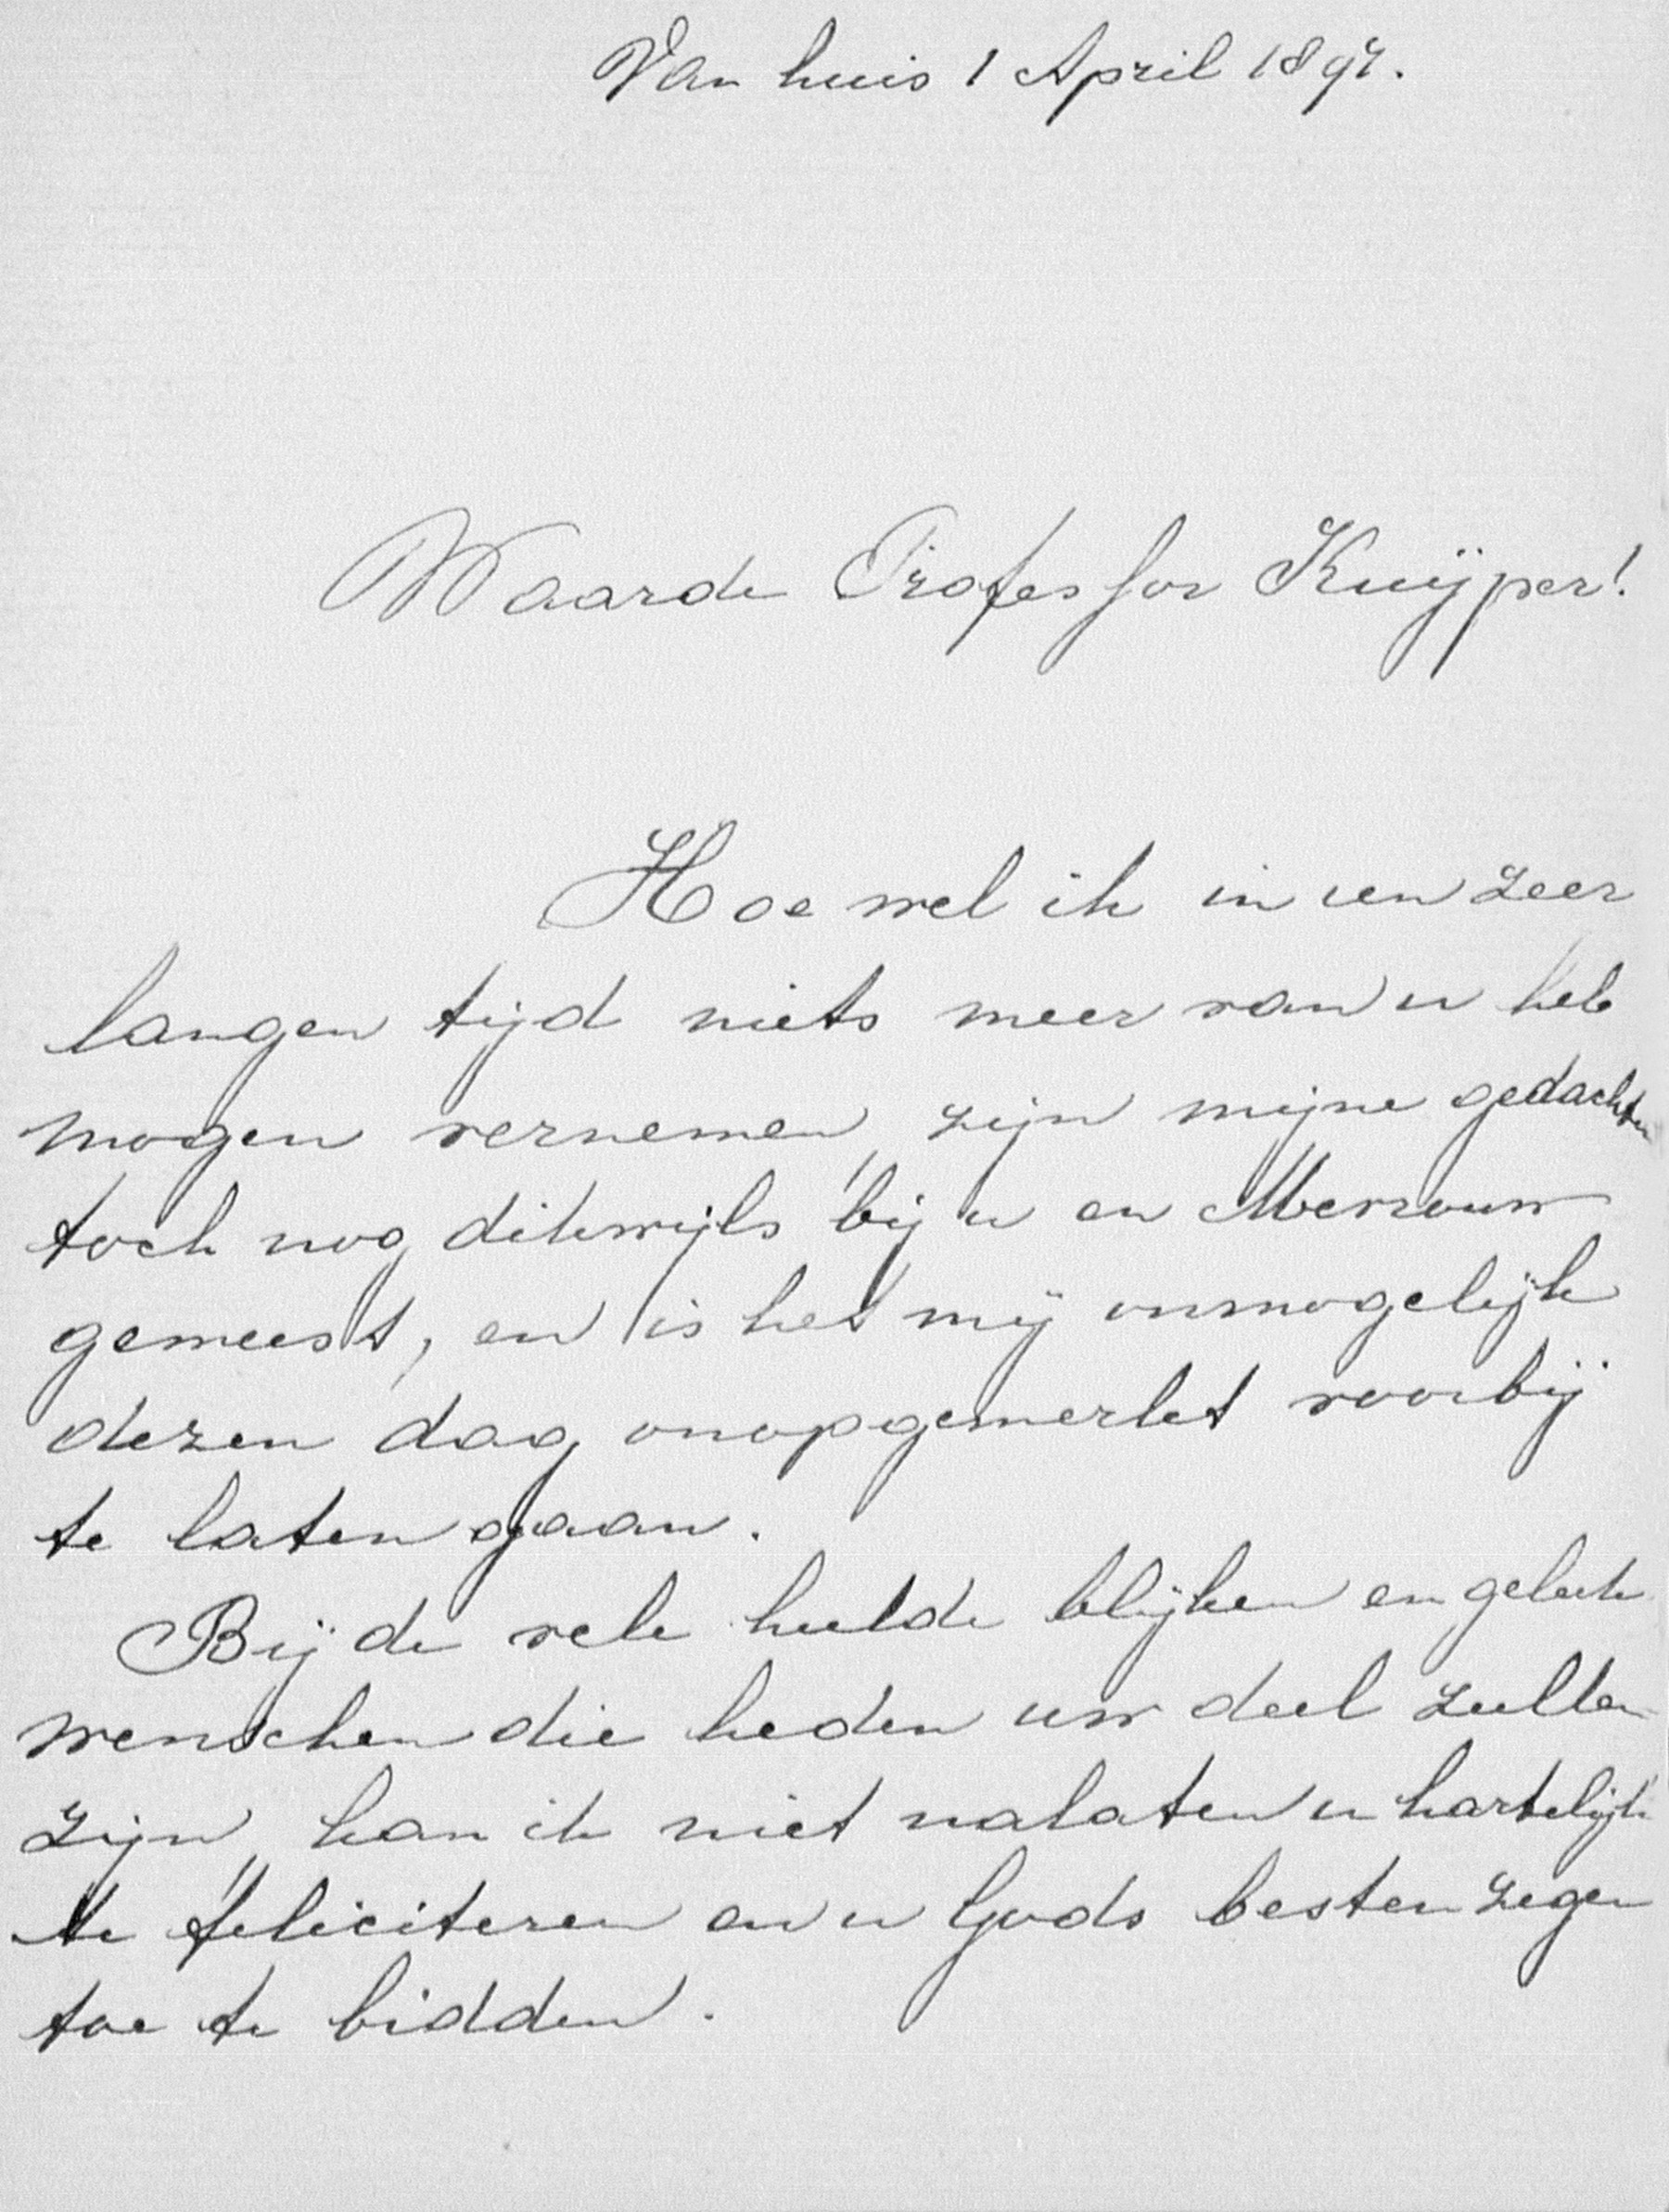 Van huis 1 April 1897.
Waarde Professor Kuijper!
Hoewel ik in een zeer
langen tijd niets meer van u heb
mogen vernemen, zijn mijne gedachten
toch nog dikwijls bij u en Mevrouw
geweest, en is het mij onmogelijk
dezen dag onopgemerkt voorbij
te laten gaan.
Bij de vele hulde blijken en geluk
wenschen die heden uw deel zullen
zijn, kan ik niet nalaten u hartelijk
te feliciteren en u Gods besten zegen
toe te bidden.